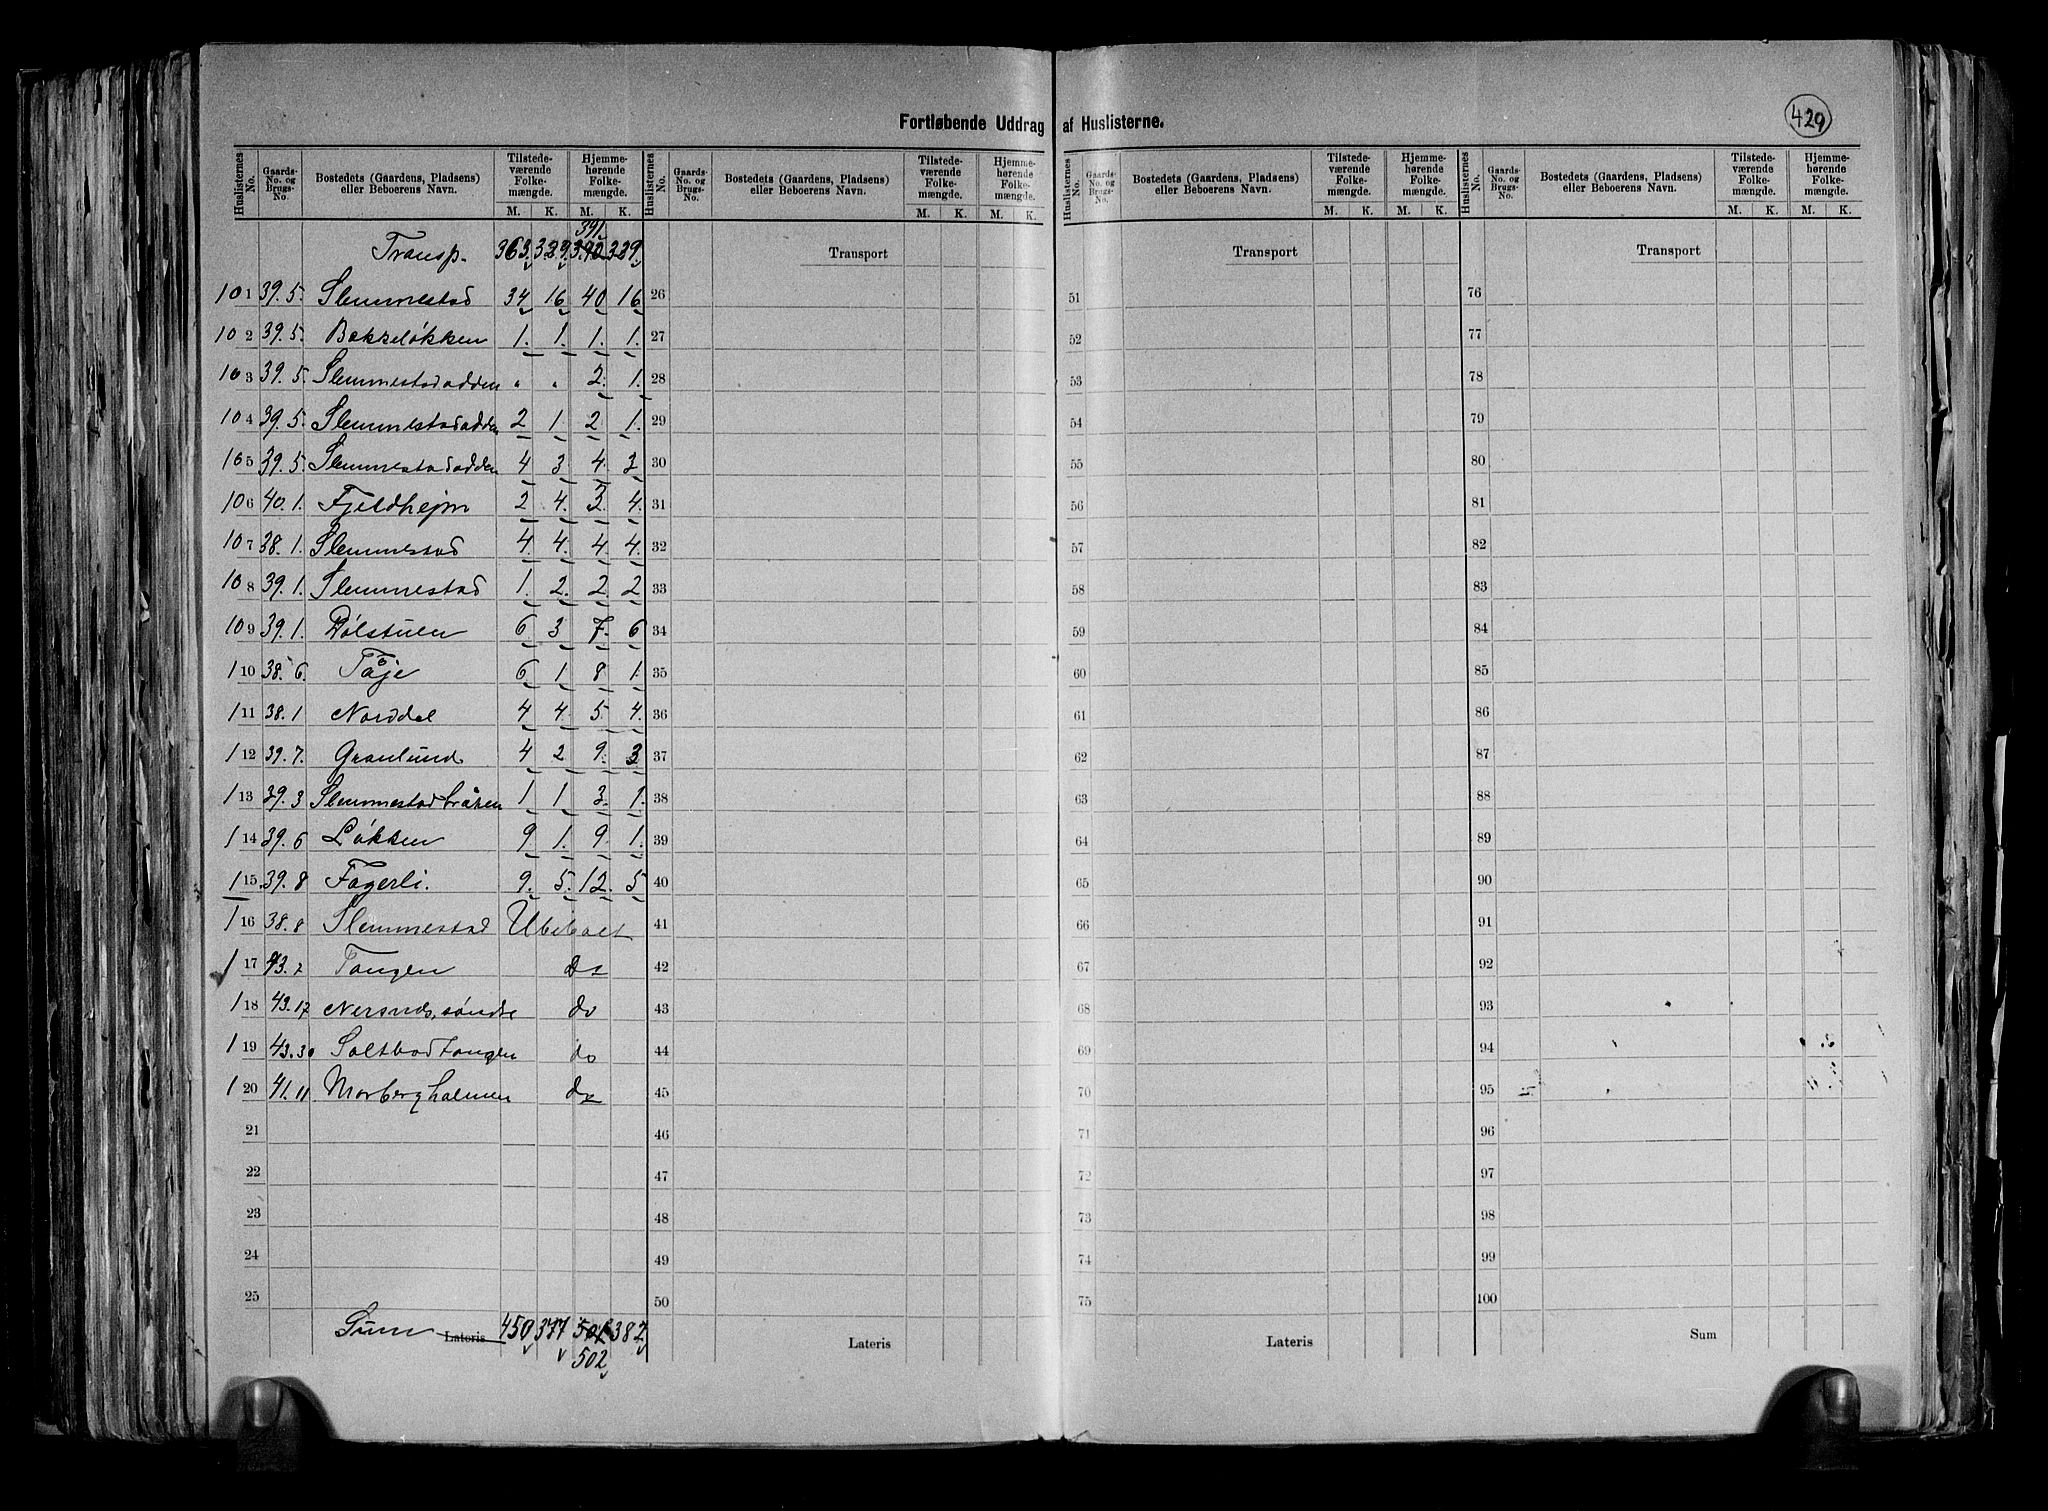 429
Fortløbende Uddrag af Huslisterne.
Huslisternes No. Gaards-No. og Brugs-No. Bostedets (Gaardens, Pladsens) eller Beboerens Navn. Tilstedeværende Folkemængde. M. K. Hjemmehørende Folkemængde. M. K.
391.
Transp. 363. 323. 390 329.
101 39. 5. Slemmestad 34 16 40 16
102 39. 5. Bakkeløkken 1. 1. 1. 1.
103 39. 5. Slemmestadodden " " 2. 1.
104 39. 5. Slemmestadodden 2 1. 2 1.
105 39. 5. Slemmestadodden 4 3 4. 3
106 40. 1. Fjeldhejm 2 4. 3. 4.
107 38. 1. Slemmestad 4. 4. 4. 4.
108 39. 1. Slemmestad 1. 2. 2. 2
109 39. 1. Dølstuen 6 3 7. 6
110 38. 6. Tåje 6. 1 8 1.
111 38. 1 Norddel 4 4. 5. 4.
112 39. 7. Granlund 4 2 9. 3
113 39. 3 Slemmestadbråten 1 1. 3. 1.
114 39. 6 Løkken 9 1. 9. 1.
115 39. 8 Fagerli. 9. 5. 12. 5
116 38. 8 Slemmestad Ubeboet
117 43. 2 Tangen do
118 43. 17 Nersnes, søndre do
119 43. 30 Saltbodtangen do
120 41. 11 Morbergholmen do
21
22
23
24
25
Sum Lateris 450 377 501 382
502
Huslisternes No. Gaards-No. og Brugs-No. Bostedets (Gaardens, Pladsens) eller Beboerens Navn. Tilstedeværende Folkemængde. M. K. Hjemmehørende Folkemængde. M. K.
Transport
26
27
28
29
30
31
32
33
34
35
36
37
38
39
40
41
42
43
44
45
46
47
48
49
50
Lateris
Huslisternes No. Gaards-No. og Brugs-No. Bostedets (Gaardens, Pladsens) eller Beboerens Navn. Tilstedeværende Folkemængde. M. K. Hjemmehørende Folkemængde. M. K.
Transport
51
52
53
54
55
56
57
58
59
60
61
62
63
64
65
66
67
68
69
70
71
72
73
74
75
Lateris
Huslisternes No. Gaards-No. og Brugs-No. Bostedets (Gaardens, Pladsens) eller Beboerens Navn. Tilstedeværende Folkemængde. M. K. Hjemmehørende Folkemængde. M. K.
Transport
76
77
78
79
80
81
82
83
84
85
86
87
88
89
90
91
92
93
94
95
96
97
98
99
100
Sum